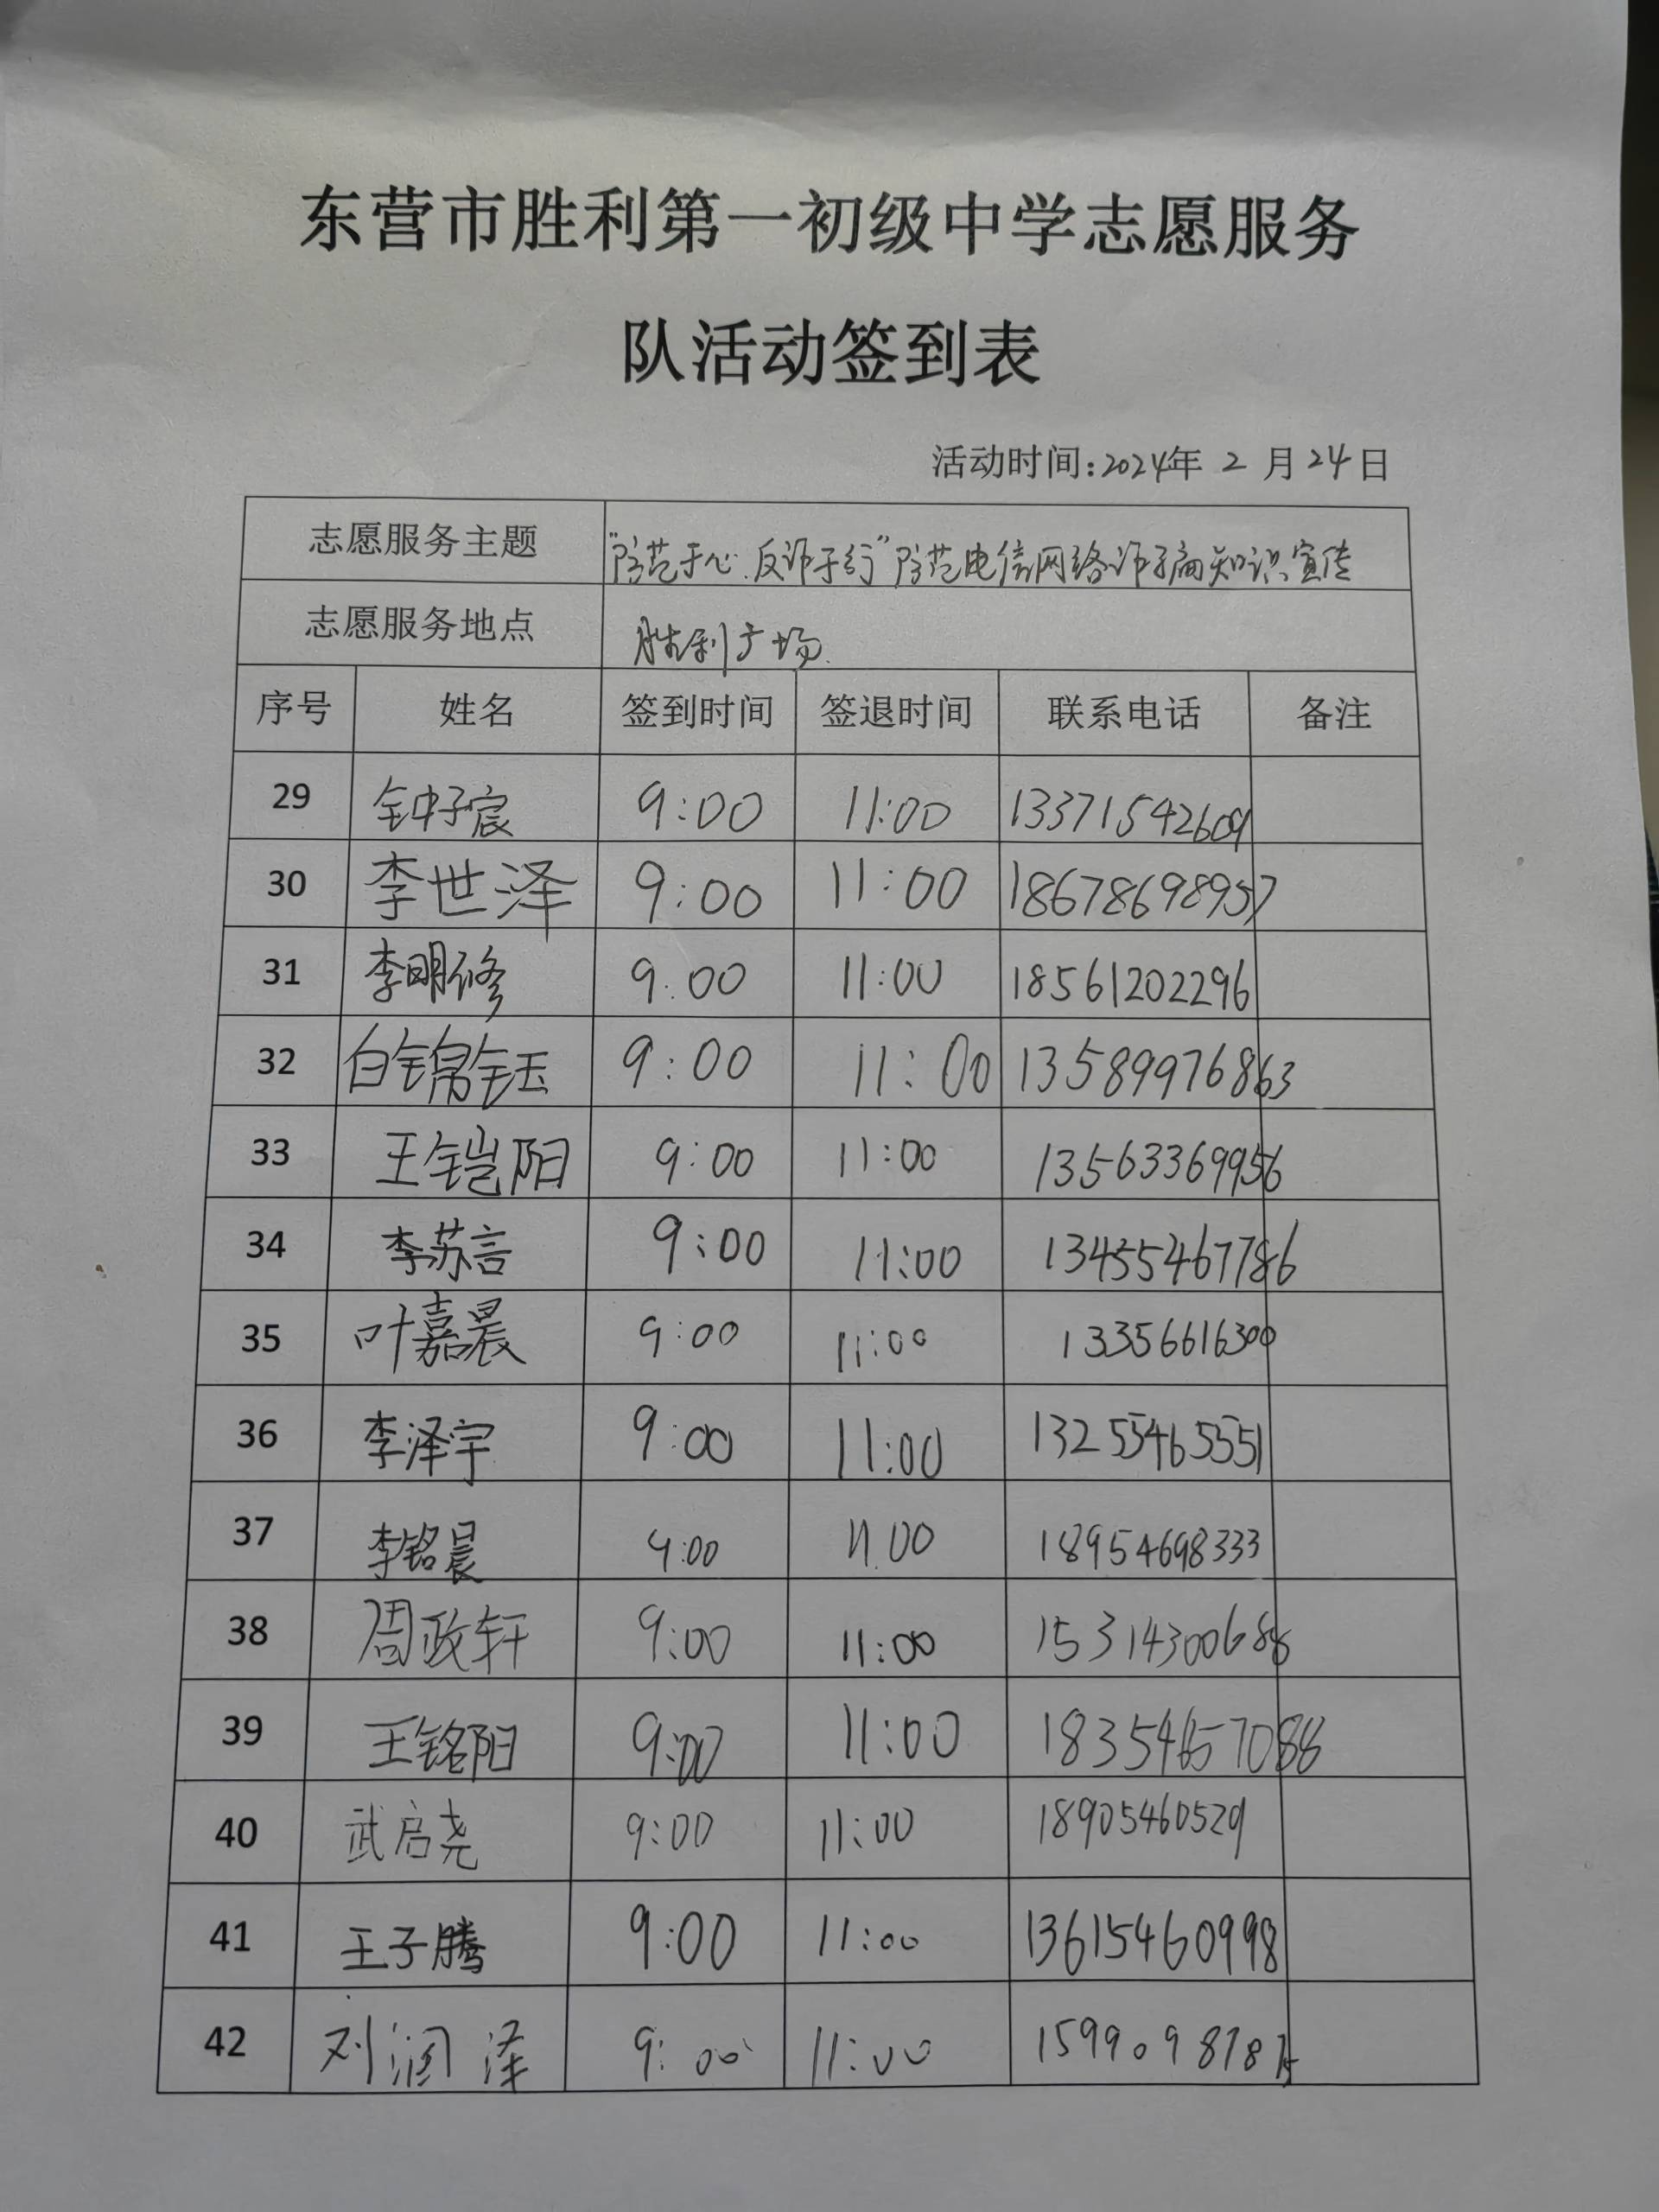 东营市胜利第一初级中学志愿服务
队活动签到表
活动时间:2024年 2 月 24 日
志愿服务主题 "防范于心.反诈于行"防范电信网络诈骗知识宣传
志愿服务地点 胜利广场.
序号 姓名 签到时间 签退时间 联系电话 备注
29 钟子宸 9:00 11:00 13371542609
30 李世泽 9:00 11:00 18678698957
31 李明修 9:00 11:00 18561202296
32 白锦钰 9:00 11:00 13589976863
33 王铠阳 9:00 11:00 13563369956
34 李苏言 9:00 11:00 13455467786
35 叶嘉晨 9:00 11:00 13356616300
36 李泽宇 9:00 11:00 13255465551
37 李铭晨 9:00 11:00 18954698333
38 周政轩 9:00 11:00 15314300688
39 王铭阳 9:00 11:00 18354657088
40 武启尧 9:00 11:00 18905460529
41 王子腾 9:00 11:00 13615460998
42 刘润泽 9:00 11:00